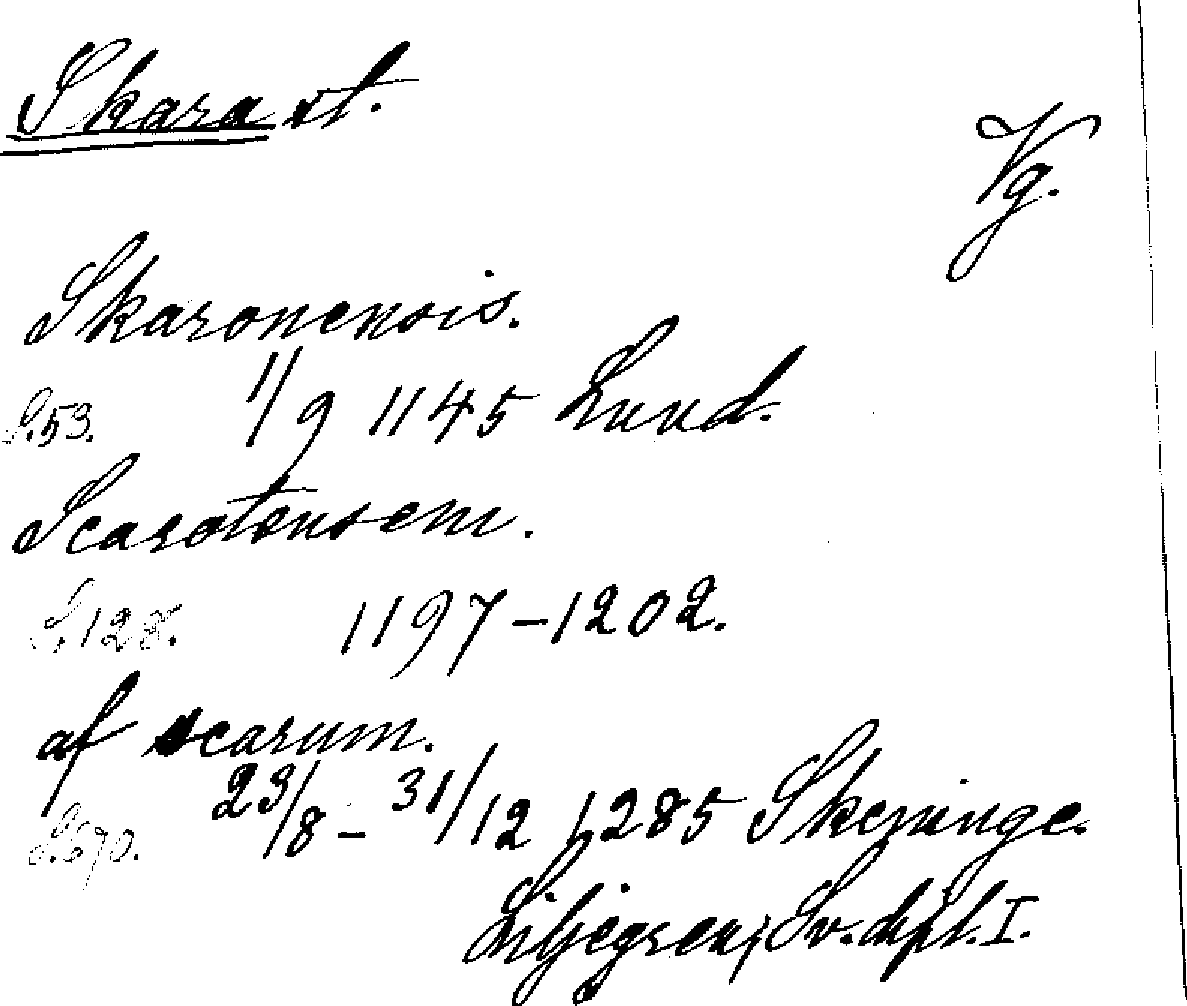 Skara st.
Vg.
Skaronensis.
S.53. 11/9 1145 Lund.
Scarotensem.
S.128. 1197-1202.
af scarum.
S.670. 23/8 - 31/12 1285 Skeninge.
Liljegren, Sv. dipl. I.